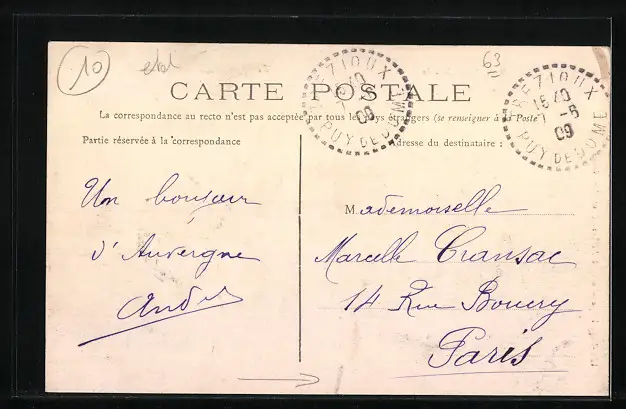 10
63
CARTE POSTALE
La correspondance au recto n'est pas acceptée par tous les pays étrangers (se renseigner à la Poste
Partie réservée à la correspondance
Adresse du destinataire :
Un bonjour
d'Auvergne
André
Mademoiselle
Marcelle Cransac
14 Rue Boucry
Paris
PUY DE DOME
15 40
09
PUY DE DOME
15 40
-6
09